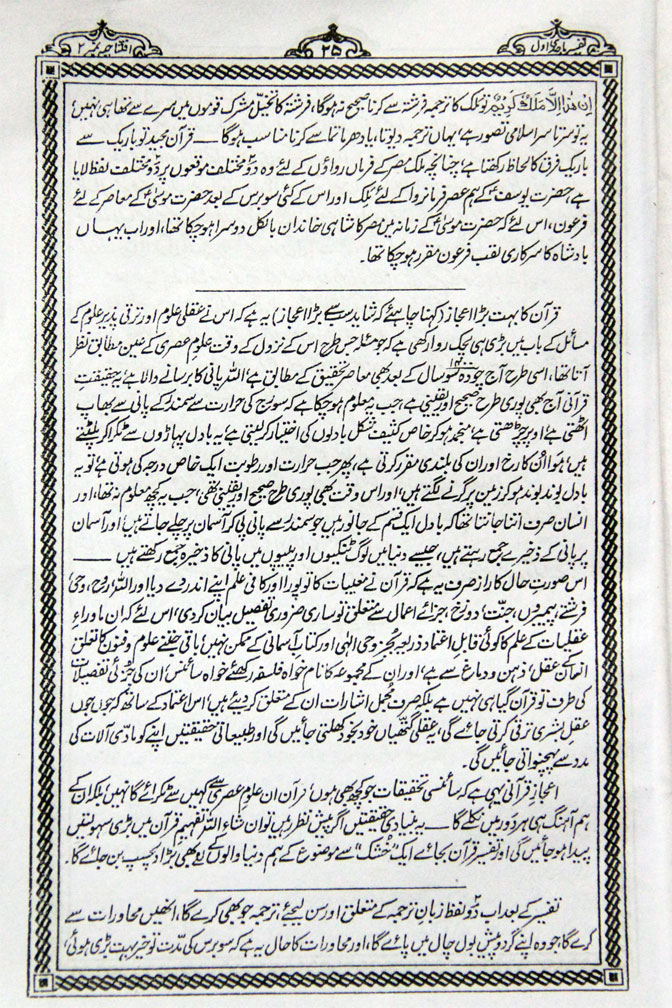 تفسیر ماجدی اول
۲۵
افتتاحیہ نمبر ۲
اِنْ هٰذَا اِلَّا مَلَكٌ كَرِیْمٌ تو ملک کا ترجمہ فرشتہ سے کرنا صحیح نہ ہوگا، فرشتہ کا تخیل مشرک قوموں میں سرے سے تھا ہی نہیں،
یہ تو سرتا سر اسلامی تصور ہے، یہاں ترجمہ دیوتا، یا دھرماتما سے کرنا مناسب ہوگا —— قرآن مجید تو باریک سے
باریک فرق کا لحاظ رکھتا ہے، چنانچہ ملک مصر کے فرماں رواؤں کے لئے وہ دو مختلف موقعوں پر دو مختلف لفظ لایا
ہے، حضرت یوسفؑ کے ہم عصر فرمانروا کے لئے مَلِک اور اس کے کئی سو برس کے بعد حضرت موسیٰؑ کے معاصر کے لئے
فرعون، اس لئے کہ حضرت موسیٰؑ کے زمانہ میں مصر کا شاہی خاندان بالکل دوسرا ہو چکا تھا، اور اب یہاں
بادشاہ کا سرکاری لقب فرعون مقرر ہو چکا تھا۔
قرآن کا بہت بڑا اعجاز (کہنا چاہئے کہ شاید سب سے بڑا اعجاز) یہ ہے کہ اس نے عقلی علوم اور ترقی پذیر علوم کے
مسائل کے باب میں بڑی ہی لچک روا رکھی ہے کہ جو مسئلہ جس طرح اس کے نزول کے وقت علوم عصری کے عین مطابق نظر
آتا تھا، اسی طرح آج چودہ سو ۱۴۰۰ سال کے بعد بھی معاصر تحقیق کے مطابق ہے، اللہ پانی کا برسانے والا ہے، یہ حقیقتِ
قرآنی آج بھی پوری طرح صحیح اور یقینی ہے، جب یہ معلوم ہو چکا ہے کہ سورج کی حرارت سے سمندر کے پانی سے بھاپ
اٹھتی ہے، اوپر چڑھتی ہے، منجمد ہو کر خاص کثیف شکل بادلوں کی اختیار کر لیتی ہے، یہ بادل پہاڑوں سے ٹکرا کر پلٹتے
ہیں، ہوا ان کا رخ اور ان کی بلندی مقرر کرتی ہے، پھر جب حرارت اور رطوبت ایک خاص درجہ کی ہوتی ہے، تو یہ
بادل بوند بوند ہو کر زمین پر گرنے لگتے ہیں، اور اس وقت بھی پوری طرح صحیح اور یقینی تھی، جب یہ کچھ معلوم نہ تھا، اور
انسان صرف اتنا جانتا تھا کہ بادل ایک قسم کے جانور ہیں جو سمندر سے پانی پی کر آسمان پر چلے جاتے ہیں، اور آسمان
پر پانی کے ذخیرے جمع رہتے ہیں، جیسے دنیا میں لوگ ٹنکیوں اور پیپوں میں پانی کا ذخیرہ جمع رکھتے ہیں ——
اس صورتِ حال کا راز صرف یہ ہے کہ قرآن نے مغیبات کا تو پورا اور کافی علم اپنے اندر دے دیا، اور اللہ، روح، وحی،
فرشتے، پیمبروں، جنت، دوزخ، جزائے اعمال سے متعلق تو ساری ضروری تفصیل بیان کر دی، اس لئے کہ ان ماوراء
عقلیات کے علم کا کوئی قابلِ اعتماد ذریعہ بجز وحی الٰہی اور کتابِ آسمانی کے ممکن نہیں، باقی جتنے علوم و فنون کا تعلق
انسان کے عقل، ذہن و دماغ سے ہے، اور ان کے مجموعہ کا نام خواہ فلسفہ رکھئے خواہ سائنس، ان کی جزئی تفصیلات
کی طرف تو قرآن گیا ہی نہیں ہے، بلکہ صرف مجمل اشارات ان کے متعلق کر دیئے ہیں، اس اعتماد کے ساتھ کہ جوں جوں
عقلِ بشری ترقی کرتی جائے گی، یہ عقلی گتھیاں خود بخود کھلتی جائیں گی اور طبیعاتی حقیقتیں اپنے کو مادّی آلات کی
مدد سے پہچنواتی جائیں گی۔
اعجازِ قرآنی یہی ہے کہ سائنسی تحقیقات جو کچھ بھی ہوں، قرآن ان علوم عصری سے کہیں سے ٹکرائے گا نہیں، بلکہ ان کے
ہم آہنگ ہی ہر دور میں نکلے گا —— یہ بنیادی حقیقتیں اگر پیش نظر رہیں تو ان شاء اللہ تفہیمِ قرآن میں بڑی سہولتیں
پیدا ہو جائیں گی اور تفسیرِ قرآن بجائے ایک "خشک" سے موضوع کے ہم دنیا والوں کے لئے بھی بڑا دلچسپ بن جائے گا۔
تفسیر کے بعد اب دو لفظ زبانِ ترجمہ کے متعلق اور سن لیجئے، ترجمہ جو بھی کرے گا، انھیں محاورات سے
کرے گا، جو وہ اپنے گرد و پیش بول چال میں پائے گا، اور محاورات کا حال یہ ہے کہ سو برس کی مدت تو خیر بہت بڑی ہوئی،